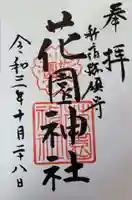 奉拝
新宿総鎮守
花園神社
令和三年十月二十八日